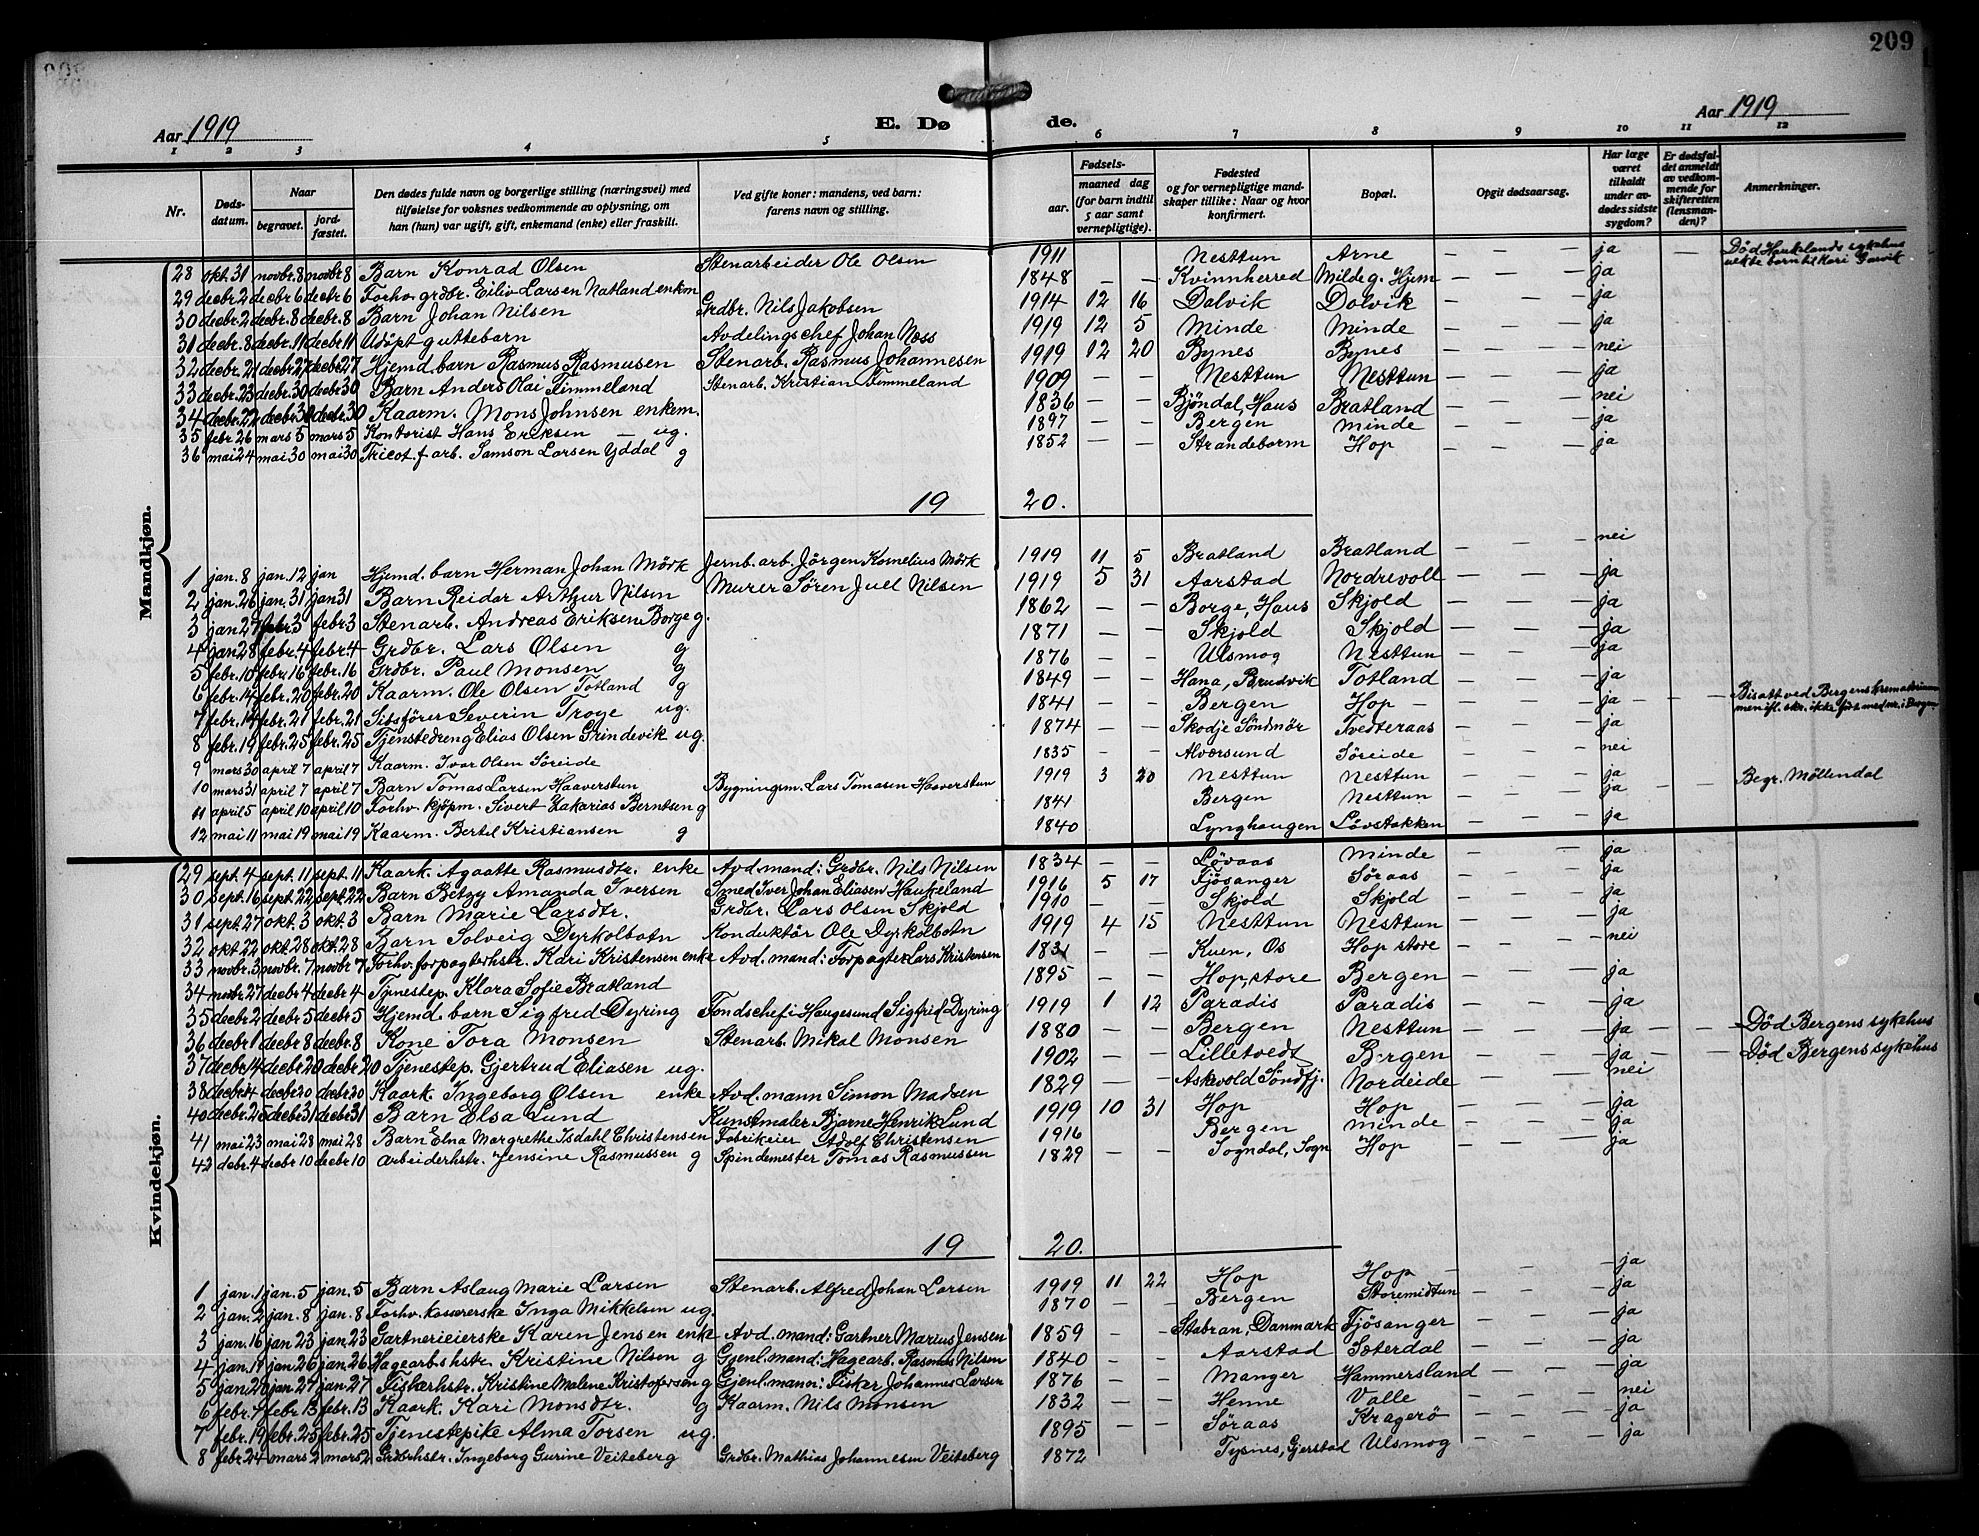 209
Aar 1919 E. Dø de. Aar 1919
1 2 3 4 5 6 7 8 9 10 11 12
Nr.
Døds-datum.
Naar
begravet.
jord-fæstet.
Den dødes fulde navn og borgerlige stilling (næringsvei) med tilføielse for voksnes vedkommende av oplysning, om han (hun) var ugift, gift, enkemand (enke) eller fraskilt.
Ved gifte koner: mandens, ved barn: farens navn og stilling.
Fødsels-
aar.
maaned dag (for barn indtil 5 aar samt vernepligtige).
Fødested og for vernepligtige mand-skaper tillike: Naar og hvor konfirmert.
Bopæl.
Opgit dødsaarsag.
Har læge været tilkaldt under av-dødes sidste sygdom?
Er dødsfal-det anmeldt av vedkom-mende for skifteretten (lensman-den)?
Anmerkninger.
Mandkjøn.
28 okt. 31 novbr. 8 novbr 8 Barn Konrad Olsen Stenarbeider Ole Olsen 1911 Nesttun Arne — — — ja — — Død Haukelands sykehus uekte barn til Kari
29 decbr 2 decbr 6 decbr 6 Forhv. grdbr. Eiliv Larsen Natland enkm 1848 — — Kvinnherred Mildeg. Hjem — — — ja
30 decbr. 2 decbr. 8 decbr. 8 Barn Johan Nilsen Grdbr. Nils Jakobsen 1914 12 16 Dolvik Dolvik — — — ja
31 decbr. 8 decbr 11 decbr 11 Udøpt guttebarn Avdelingschef Johan Næss 1919 12 5 Minde Minde — — — ja
32 decbr. 21 decbr 27 decbr 27 Hjemd. barn Rasmus Rasmusen Stenarb. Rasmus Johannesen 1919 12 20 Bynes Bynes — — — nei
33 decbr. 23 decbr. 30 decbr. 30 Barn Anders Olai Timmeland Stenarb. Kristian Timmeland 1909 — — Nesttun Nesttun — — — ja
34 decbr. 22 decbr. 30 decbr. 30 Kaarm. Mons Johnsen enkem. 1836 — — Bjöndal, Haus Bratland — — — nei
35 febr. 26 mars 5 mars 5 Kontorist Hans Eriksen — ug. 1897 — — Bergen Minde — — — ja
36 mai 24 mai 30 mai 30 Tricot. f. arb. Samson Larsen Yddal g 1852 — — Strandebarm Hop — — — ja
19 20.
1 jan. 8 jan. 12 jan Hjemd. barn Herman Johan Mörk Jernb. arb. Jörgen Kornelius Mörk 1919 11 5 Bratland Bratland — — — nei
2 jan. 26 jan. 31 jan 31 Barn Reidar Arthur Nilsen Murer Søren Juel Nilsen 1919 5 31 Aarstad Nordrevoll — — — ja
3 jan 27 febr 3 febr 3 Stenarb. Andreas Eriksen Borge g. 1862 — — Borge, Haus Skjold — — — ja
4 jan 28 febr. 4 febr. 4 Grdbr. Lars Olsen g 1871 — — Skjold Skjold — — — ja
5 febr. 10 febr. 16 febr. 16 Grdbr. Paul Monsen g 1876 — — Ulsmog Nesttun — — — ja
6 febr. 14 febr. 20 febr. 20 Kaarm. Ole Olsen Totland g 1849 — — Hana, Bruvik Totland — — — ja
7 febr. 14 febr. 21 febr. 21 Severin Troye ug. 1841 — — Bergen Hop — — — ja — — Bisatt ved Bergens krematorium
8 febr. 19 febr. 25 febr. 25 Tjenstedreng Elias Olsen Grindevik ug. 1874 — — Skodje Söndmör Tvedteraas — — — ja
9 mars 30 april 7 april 7 Kaarm. Ivar Olsen Søreide 1835 — — Alversund Søreide — — — nei
10 mars 31 april 7 april 7 Barn Tomas Larsen Haaverstun Bygningsm. Lars Tomasen Haaverstun 1919 3 20 Nesttun Nesttun — — — ja
11 april 5 april 10 april 10 Forhv. kjøpm. Sivert Zakarias Berntsen g 1841 Bergen Nesttun — — — ja — — Begr. Möllendal
12 mai 11 mai 19 mai 19 Kaarm. Bertel Kristiansen g 1840 Lynghaugen Løvstakken — — — ja
Kvindekjøn.
29 sept. 4 sept. 11 sept. 11 Kaark. Agaatte Rasmusdtr. enke Avd. mand: Grdbr. Nils Nilsen 1834 — — Løvaas Minde — — — ja
30 sept. 16 sept. 22 sept. 22 Barn Betzy Amanda Iversen Smed Iver Johan Eliasen Haukeland 1916 5 17 Fjösanger Søraas — — — ja
31 sept. 27 okt. 3 okt. 3 Barn Marie Larsdtr. Grdbr. Lars Olsen Skjold 1910 — — Skjold Skjold — — — ja
32 okt. 22 okt. 28 okt. 28 Barn Solveig Dyrkolbotn Konduktör Ole Dyrkolbotn 1919 4 15 Nesttun Nesttun — — — ja
33 novbr. 3 novbr. 7 novbr 7 Forhv. forpagterhstr. Kari Kristensen enke Avd. mand: Forpagter Lars Kristensen 1831 — — Kuen, Os Hop store — — — nei
34 novbr 27 decbr 4 decbr. 4 Tjenestep. Klara Sofie Bratland 1895 — — Hop, store Bergen — — — ja
35 decbr. 2 decbr 5 decbr 5 Hjemd. barn Sigfred Dyring Fondschef i Haugesund Sigfrid Dyring 1919 1 12 Paradis Paradis — — — ja
36 decbr. 1 decbr 8 decbr. 8 Kone Tora Monsen Stenarb. Mikal Monsen 1880 — — Bergen Nesttun — — — ja — — Død Bergens sykehus
37 decbr 14 decbr 20 decbr 20 Tjenestep. Gjertrud Eliasen ug. 1902 — — Lilletvedt Bergen — — — ja — — Død Bergens sykehus
38 decbr. 14 decbr 20 decbr 20 Kaark. Ingeborg Olsen enke Avd. mann Simon Madsen 1829 — — Askvold Söndfj. Nordeide — — — nei
40 decbr. 25 decbr 31 decbr 31 Barn Elsa Lund Kunstmaler Bjarne Henrik Lund 1919 10 31 Hop Hop — — — ja
41 mai 23 mai 28 mai 28 Barn Elna Margrethe Isdahl Christensen Fabrikeier Adolf Christensen 1916 Bergen Minde — — — ja
42 decbr. 4 decbr 10 decbr 10 Arbeiderhstr. Jensine Rasmussen g Spindemester Tomas Rasmussen 1829 — — Sogndal, Sogn Hop — — — ja
19 20.
1 jan. 1 jan. 5 jan. 5 Barn Aslaug Marie Larsen Stenarb. Alfred Johan Larsen 1919 11 22 Hop Hop — — — ja
2 jan. 2 jan. 8 jan. 8 Forhv. Inga Mikkelsen ug. 1870 — — Bergen Storemidtun — — — ja
3 jan. 16 jan. 23 jan. 23 Gartnerieierske Karen Jensen enke Avd. mand: Gartner Marius Jensen 1859 — — Stabran, Danmark Fjösanger — — — ja
4 jan. 19 jan. 26 jan. 26 Hagearb.hstr. Kristine Nilsen g Gjenl. mand: Hagearb. Rasmus Nilsen 1840 — — Aarstad Sæterdal — — — ja
5 jan. 20 jan. 27 jan. 27 Fiskerhstr. Kristine Malene Kristofersen g Gjenl. mann: Fisker Johannes Larsen 1876 — — Manger Hammersland — — — ja
6 febr. 9 febr 13 febr. 13 Kaark. Kari Monsdtr. g Kaarm. Nils Monsen 1832 — — Henne Valle — — — nei
7 febr. 19 febr. 25 febr. 25 Tjenestepike Alma Torsen ug. 1895 — — Søraas Kragerö — — — ja
8 febr. 24 mars 2 mars 2 Grdbrhstr. Ingeborg Gurine Veiteberg Grdbr. Mathias Johannesen Veiteberg 1872 Tysnes, Gjerstad Ulsmog — — — ja